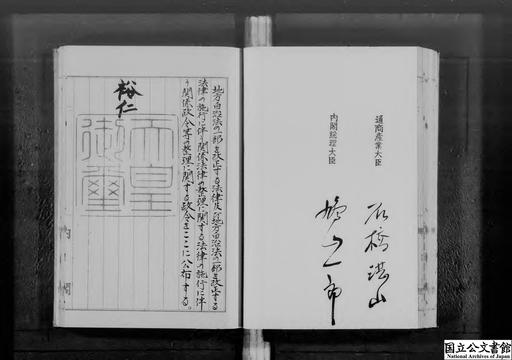 地方自治法の一部を改正する法律及び地方自治法の一部を改正する
法律の施行に伴う関係法律の整理に関する法律の施行に伴
う関係政令等の整理に関する政令をここに公布する。
裕仁
天皇
御璽
内閣
通商産業大臣
石橋湛山
内閣総理大臣
鳩山一郎
国立公文書館
National Archives of Japan